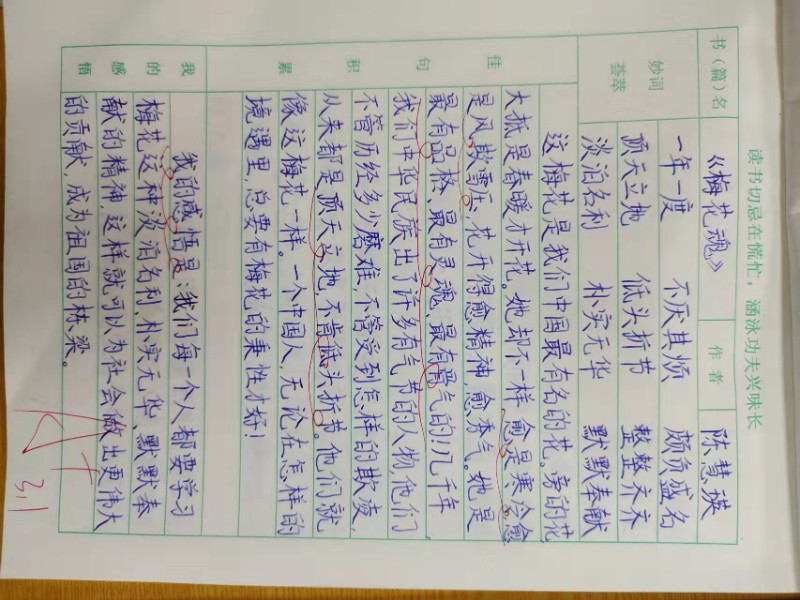 读书切忌在慌忙，涵泳功夫兴味长
书（篇）名 《梅花魂》 作者 陈慧瑛
妙词荟萃
一年一度 不厌其烦 颇负盛名
顶天立地 低头折节 整整齐齐
淡泊名利 朴实无华 默默奉献
佳句积累
这梅花是我们中国最有名的花。旁的花
大抵是春暖才开花。她却不一样，愈是寒冷愈
是风欺雪压，花开得愈精神，愈秀气。她是
最有品格、最有灵魂、最有骨气的！几千年
我们中华民族出了许多有气节的人物，他们
不管历经多少磨难，不管受到怎样的欺凌，
从来都是顶天立地，不肯低头折节。他们就
像这梅花一样。一个中国人，无论在怎样的
境遇里，总要有梅花的秉性才好！
我的感悟
我的感悟是：我们每一个人都要学习
梅花这种淡泊名利、朴实无华、默默奉
献的精神，这样就可以为社会做出更伟大
的贡献，成为祖国的栋梁。